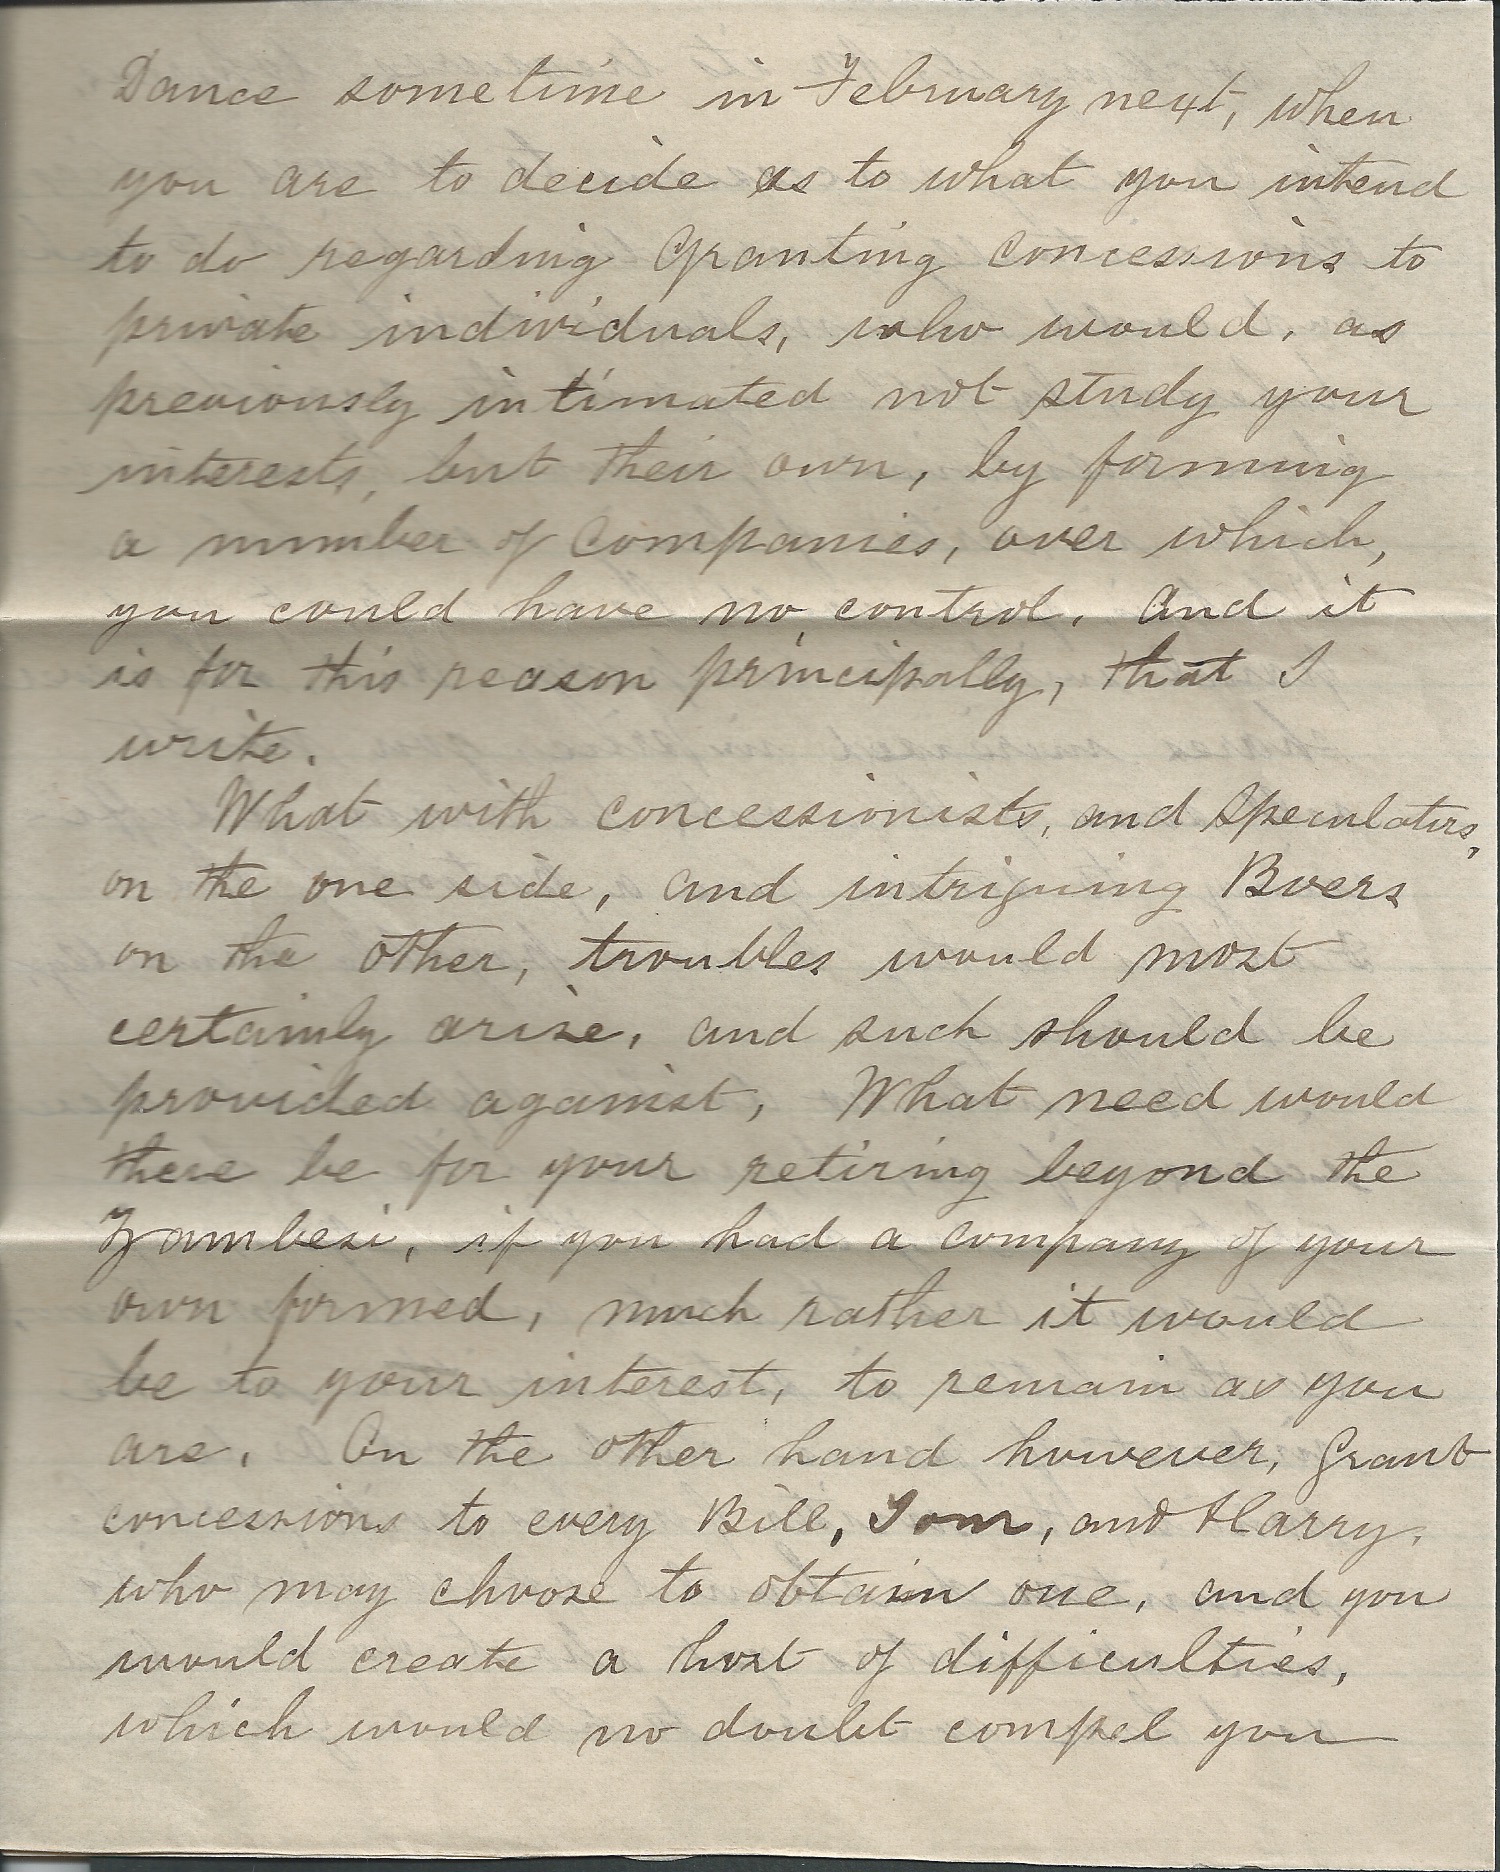 Dance sometime in February next, when
you are to decide as to what you intend
to do regarding Granting Concessions to
private individuals, who would, as
previously intimated not study your
interests, but their own, by forming
a number of Companies, over which,
you could have no control. And it
is for this reason principally, that I
write.
What with concessionists, and Speculators,
on the one side, and intriguing Boers
on the other, troubles would most
certainly arise, and such should be
provided against, What need would
there be for your retiring beyond the
Zambesi, if you had a company of your
own formed, much rather it would
be to your interest, to remain as you
are. On the other hand however, Grant
concessions to every Bill, Tom, and Harry,
who may choose to obtain one, and you
would create a host of difficulties,
which would no doubt compel you